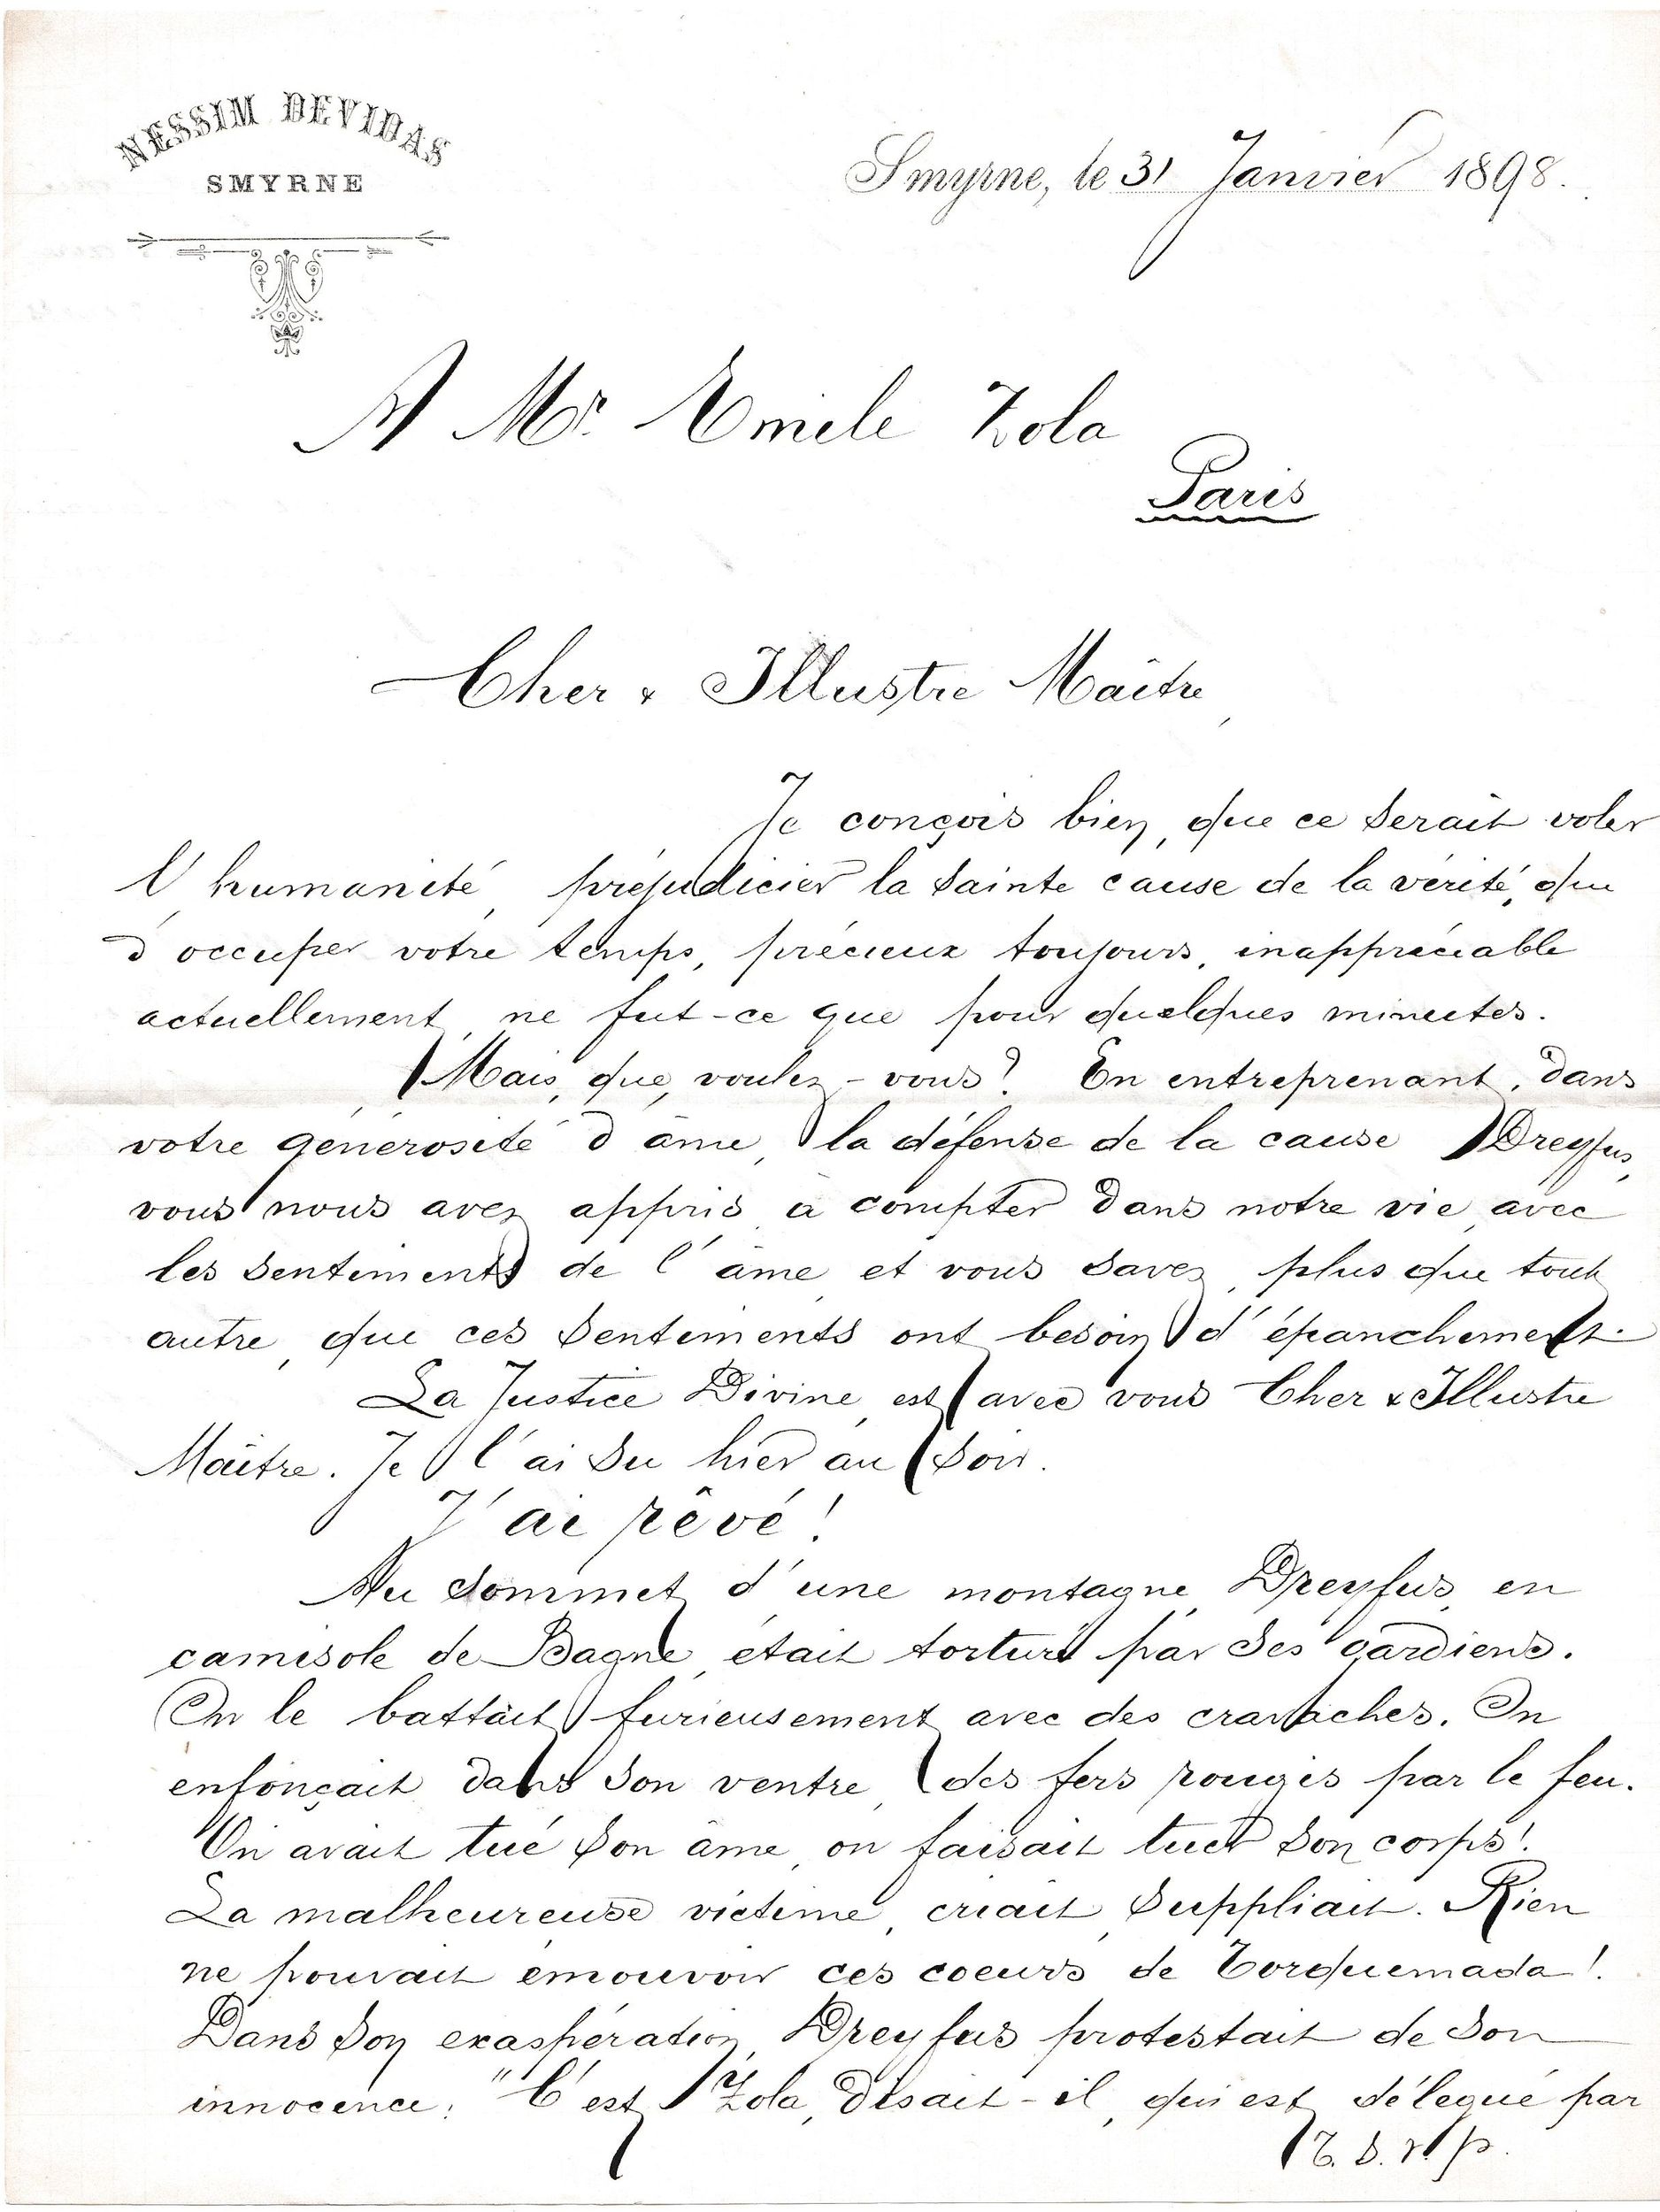 NESSIM DEVIDAS
SMYRNE
Smyrne, le 31 Janvier 1898.
A Mr. Emile Zola
Paris
Cher & Illustre Maître,
Je conçois bien, que ce serait voler
l'humanité, préjudicier la sainte cause de la vérité, que
d'occuper votre temps, précieux toujours, inappréciable
actuellement, ne fut-ce que pour quelques minutes.
Mais, que, voulez-vous? En entreprenant, dans
votre générosité d'âme, la défense de la cause Dreyfus,
vous nous avez appris à compter dans notre vie, avec
les sentiments de l'âme et vous savez, plus que tout
autre, que ces sentiments ont besoin d'épanchement.
La Justice Divine est avec vous Cher & Illustre
Maître. Je l'ai su hier au soir.
J'ai rêvé!
Au sommet d'une montagne, Dreyfus, en
camisole de Bagne, était torturé par ses gardiens.
On le battait furieusement avec des cravaches. On
enfonçait dans son ventre, des fers rougis par le feu.
On avait tué son âme, on faisait tuer son corps!
La malheureuse victime, criait, suppliait. Rien
ne pouvait émouvoir ces coeurs de Torquemada!
Dans son exaspération, Dreyfus protestait de son
innocence: "C'est Zola, disait-il, qui est délégué par
T. S. v. p.